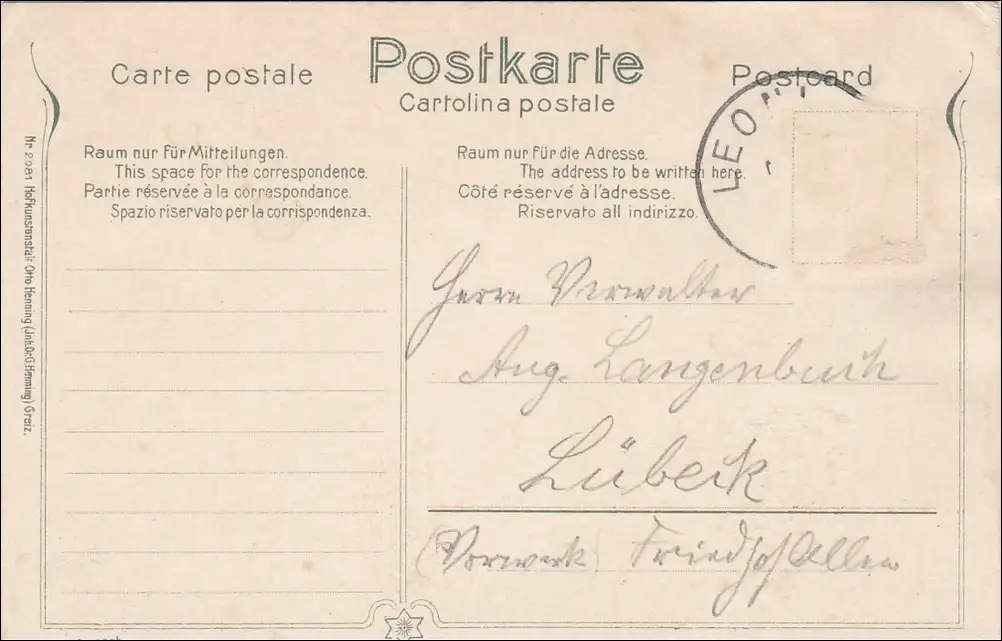 Postkarte
Carte postale
Postcard
Cartolina postale
LEON
Raum nur für Mitteilungen.
This space for the correspondence.
Partie réservée à la correspondance.
Spazio riservato per la corrispondenza.
Raum nur für die Adresse.
The address to be written here.
Côté réservé à l'adresse.
Riservato all indirizzo.
Nr. 2981 Hofkunstanstalt Otto Henning (Jnh. Dr. G. Henning) Greiz.
Herrn Verwalter
Aug. Langenbuch
Lübeck
(Vorwerk) Friedhof Allee